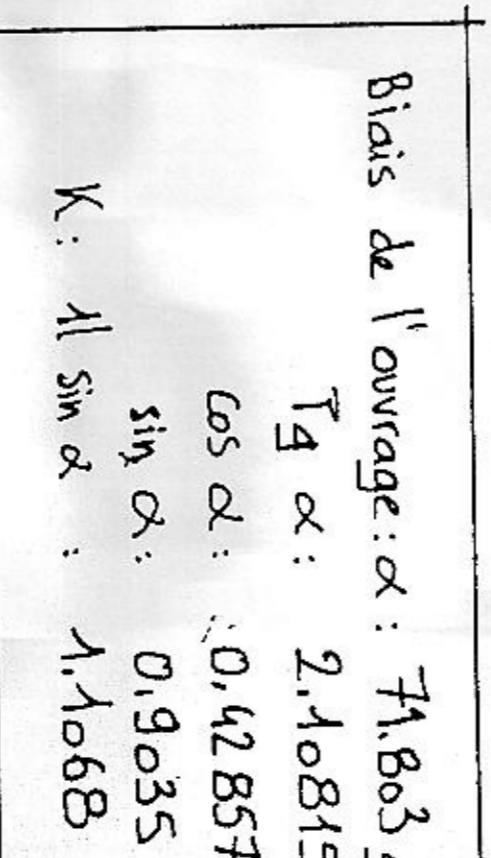 Biais de l'ouvrage: α : 71.803
Tg α : 2.10815
cos α : 0,42857
sin α : 0.9035
K : 1/ sin α : 1.1068